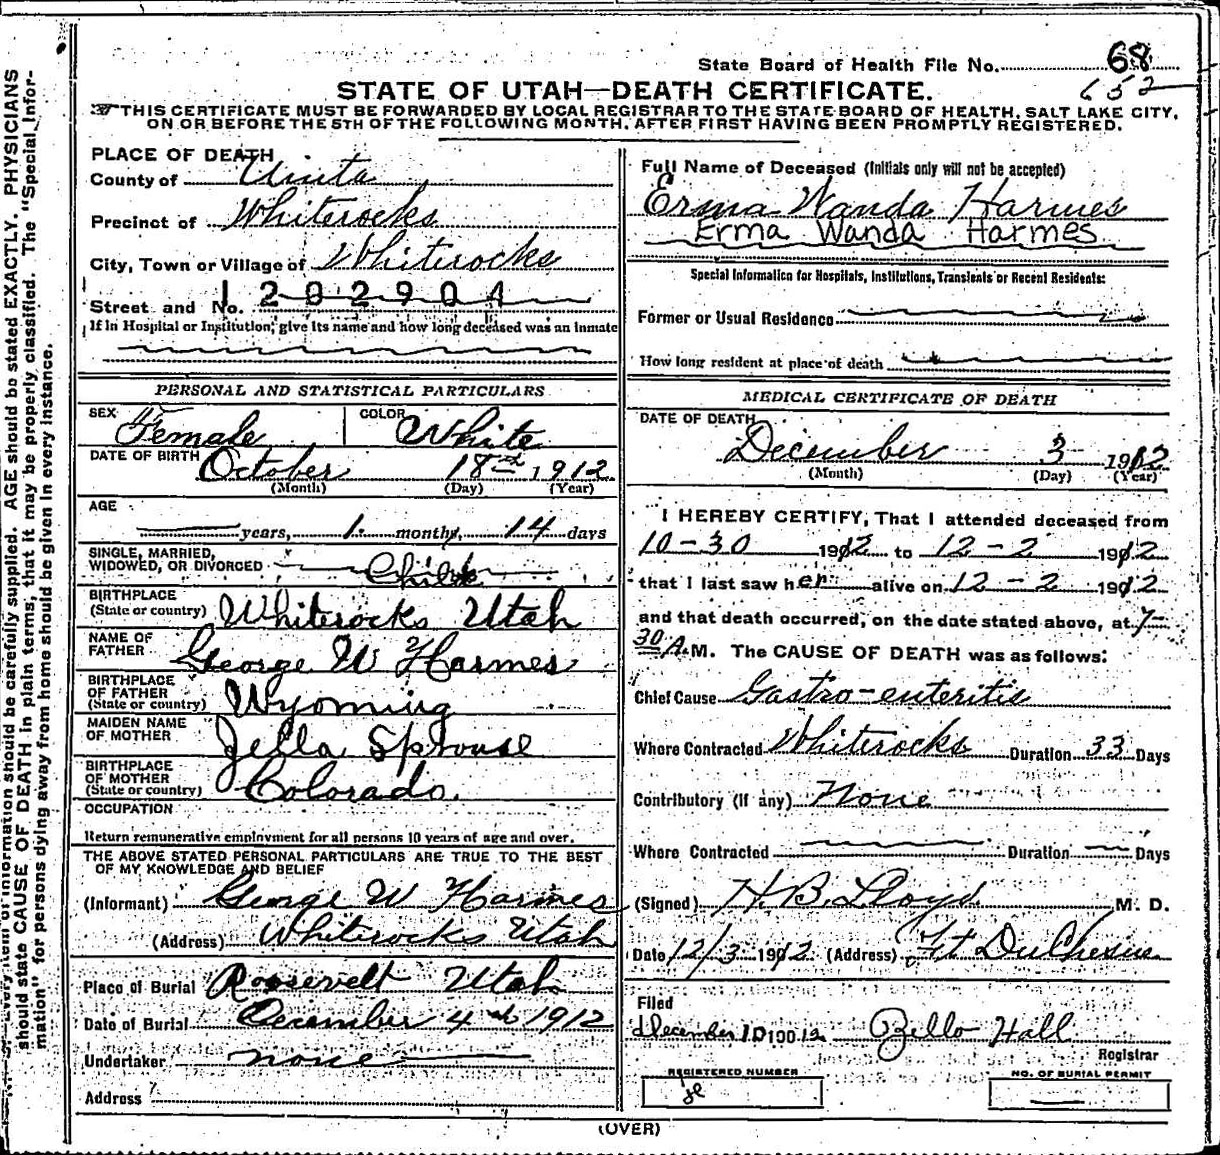 State Board of Health File No. 68
652
STATE OF UTAH—DEATH CERTIFICATE.
THIS CERTIFICATE MUST BE FORWARDED BY LOCAL REGISTRAR TO THE STATE BOARD OF HEALTH, SALT LAKE CITY,
ON OR BEFORE THE 5TH OF THE FOLLOWING MONTH, AFTER FIRST HAVING BEEN PROMPTLY REGISTERED.
PLACE OF DEATH
County of Uinta
Precinct of Whiterocks
City, Town or Village of Whiterocks
Street and No. 1202904
If in Hospital or Institution, give its name and how long deceased was an inmate
Full Name of Deceased (Initials only will not be accepted)
Erma Wanda Harmes
Erma Wanda Harmes
Special Information for Hospitals, Institutions, Transients or Recent Residents:
Former or Usual Residence
How long resident at place of death
PERSONAL AND STATISTICAL PARTICULARS
SEX Female COLOR White
DATE OF BIRTH October 18th, 1912
(Month) (Day) (Year)
AGE
years, 1 months, 14 days
SINGLE, MARRIED,
WIDOWED, OR DIVORCED Child
BIRTHPLACE
(State or country) Whiterocks Utah
NAME OF
FATHER George W Harmes
BIRTHPLACE
OF FATHER
(State or country) Wyoming
MAIDEN NAME
OF MOTHER Jella Sprouse
BIRTHPLACE
OF MOTHER
(State or country) Colorado.
OCCUPATION
Return remunerative employment for all persons 10 years of age and over.
THE ABOVE STATED PERSONAL PARTICULARS ARE TRUE TO THE BEST
OF MY KNOWLEDGE AND BELIEF
(Informant) George W Harmes
(Address) Whiterocks Utah
Place of Burial Roosevelt Utah
Date of Burial December 4th 1912
Undertaker none
Address
MEDICAL CERTIFICATE OF DEATH
DATE OF DEATH
December 3 1912
(Month) (Day) (Year)
I HEREBY CERTIFY, That I attended deceased from
10-30 1912 to 12-2 1912
that I last saw her alive on 12-2 1912
and that death occurred, on the date stated above, at 7-
30 A.M. The CAUSE OF DEATH was as follows:
Chief Cause Gastro-enteritis
Where Contracted Whiterocks Duration 33 Days
Contributory (if any) None
Where Contracted Duration Days
(Signed) H. B. Lloyd M. D.
Date 12/3 1912 (Address) Ft DuChesne
Filed
december 10 1912 Zello Hall
Registrar
REGISTERED NUMBER
NO. OF BURIAL PERMIT
(OVER)
should be carefully supplied. AGE should be stated EXACTLY. PHYSICIANS
should state CAUSE OF DEATH in plain terms, that it may be properly classified. The "Special Infor-
mation" for persons dying away from home should be given in every instance.